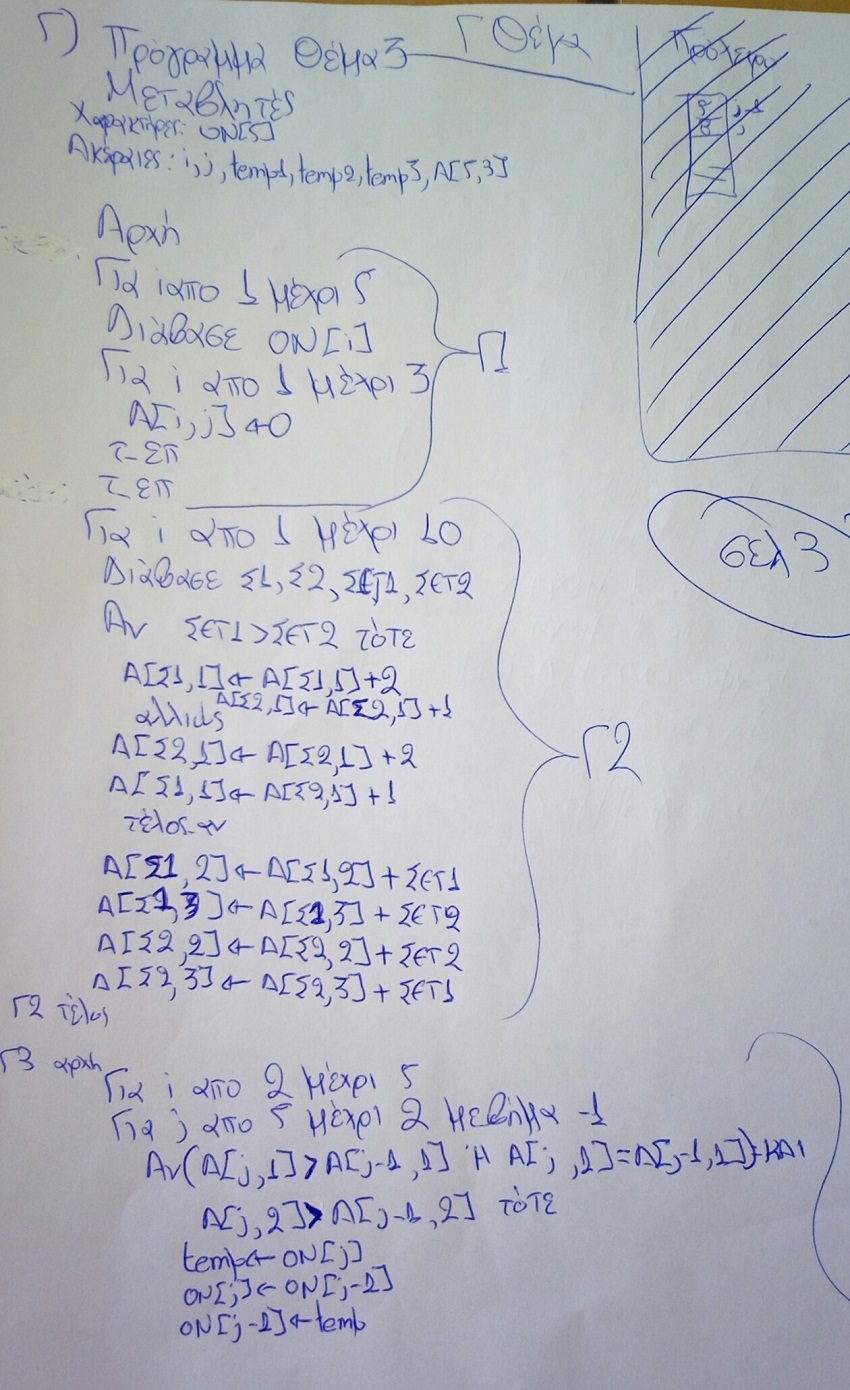 Γ) Πρόγραμμα Θέμα3 Γ Θέμα
Πρόχειρο
Μεταβλητές
Χαρακτήρες: ΟΝ[5]
Ακέραιες: i, j, temp1, temp2, temp3, Α[5,3]
5 j-1
8 j
Αρχή
Για i απο 1 μέχρι 5
Διάβασε ΟΝ[i]
Γ1
Για i απο 1 μέχρι 3
Α[i,j]←0
τ-επ
τ-επ
Για i απο 1 μέχρι 10
σελ 3
Διάβασε Σ1, Σ2, ΣΕΤ1, ΣΕΤ2
Αν ΣΕΤ1>ΣΕΤ2 τότε
Α[Σ1,1]← Α[Σ1,1]+2
Α[Σ2,1]← Α[Σ2,1]+1
αλλιώς
Α[Σ2,1]← Α[Σ2,1]+2
Γ2
Α[Σ1,1]← Α[Σ2,1]+1
τέλος-αν
Α[Σ1,2]← Α[Σ1,2]+ΣΕΤ1
Α[Σ1,3]← Α[Σ1,3]+ΣΕΤ2
Α[Σ2,2]← Α[Σ2,2]+ΣΕΤ2
Α[Σ2,3]← Α[Σ2,3]+ΣΕΤ1
Γ2 τέλος
Γ3 αρχή
Για i απο 2 μέχρι 5
Για j απο 5 μέχρι 2 με βήμα -1
Αν(Α[j,1]>Α[j-1,1] Ή Α[j,1]=Α[j-1,1]) ΚΑΙ
Α[j,2]>Α[j-1,2] τότε
temp← ΟΝ[j]
ΟΝ[j]← ΟΝ[j-1]
ΟΝ[j-1]←temp